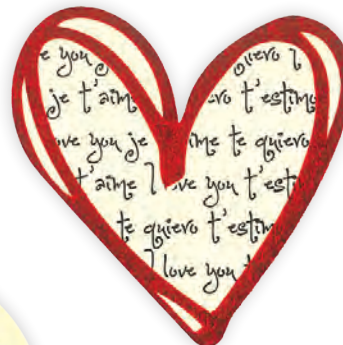 e you quiero l
je t'aime vo t'estim
love you je ime te quiero
t'aime l ve you t'esti
te quiero t'estim
I love you t